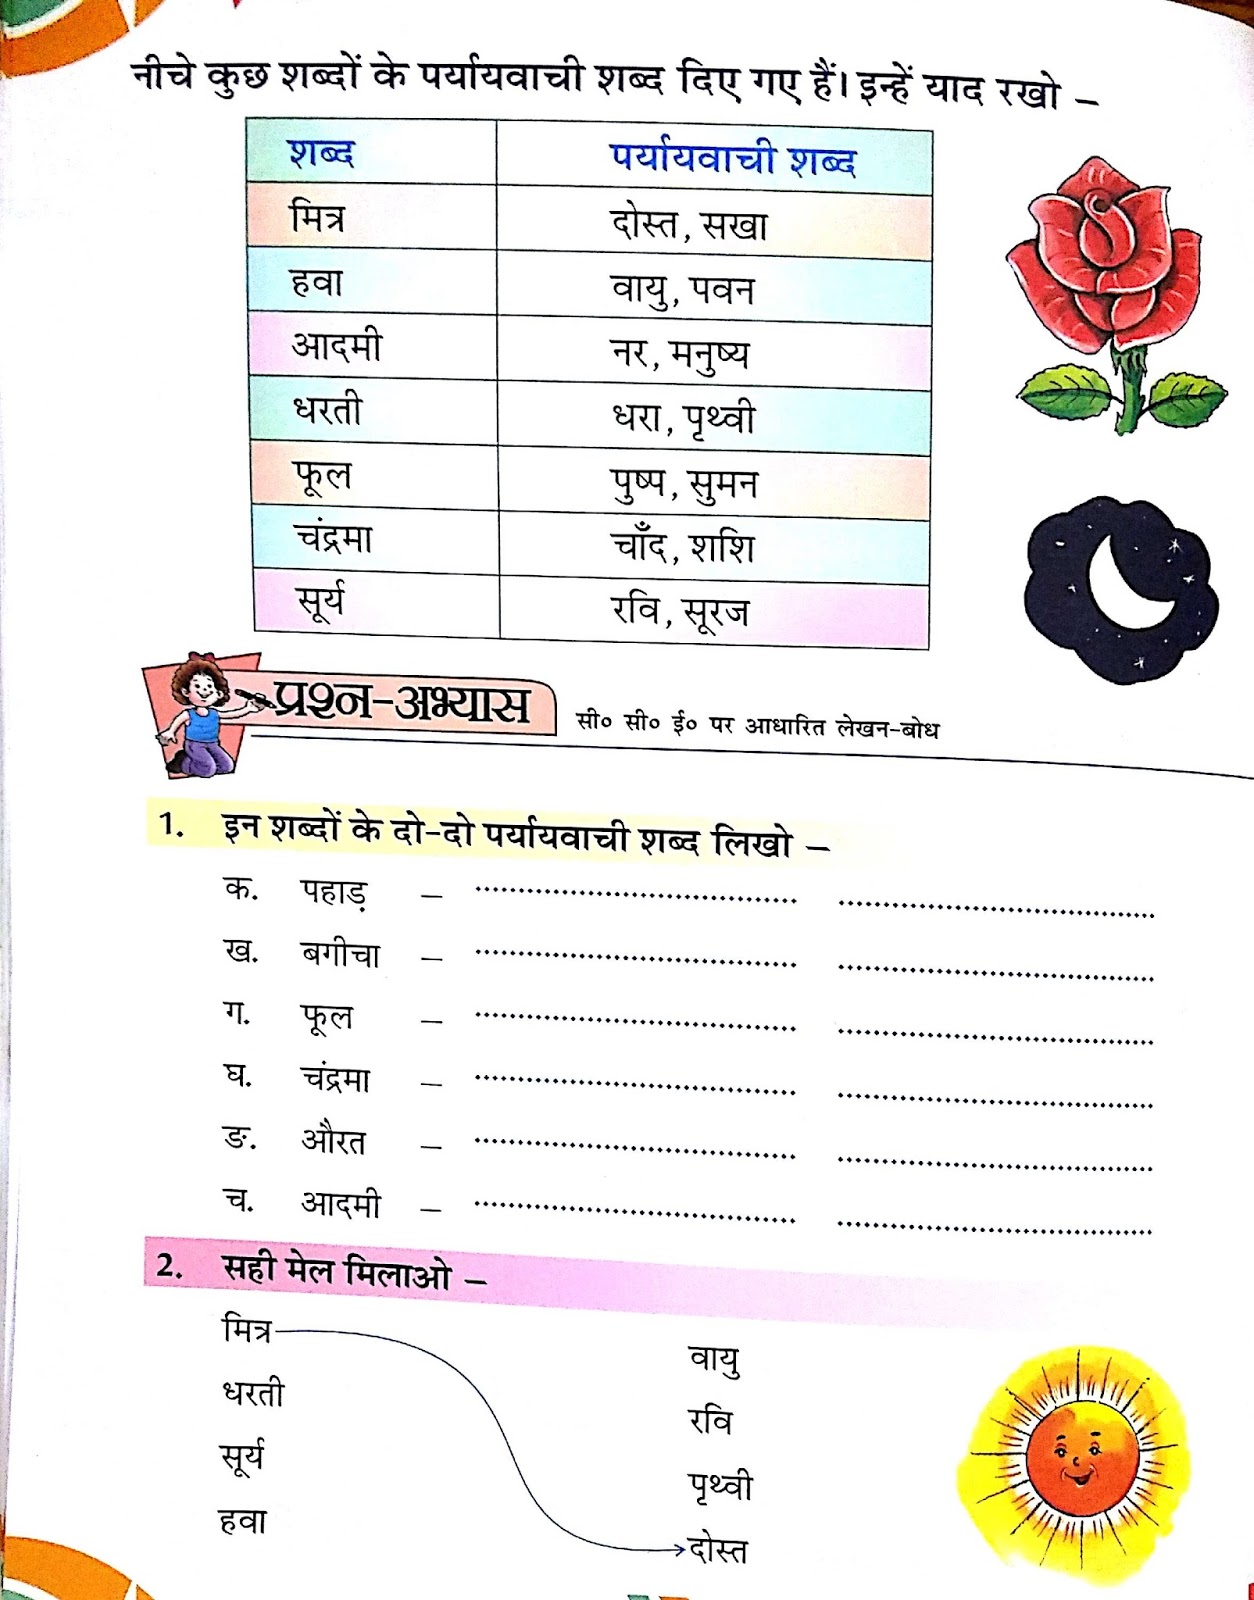 नीचे कुछ शब्दों के पर्यायवाची शब्द दिए गए हैं। इन्हें याद रखो –
शब्द पर्यायवाची शब्द
मित्र दोस्त, सखा
हवा वायु, पवन
आदमी नर, मनुष्य
धरती धरा, पृथ्वी
फूल पुष्प, सुमन
चंद्रमा चाँद, शशि
सूर्य रवि, सूरज
प्रश्न-अभ्यास सी० सी० ई० पर आधारित लेखन-बोध
1. इन शब्दों के दो-दो पर्यायवाची शब्द लिखो –
क. पहाड़ – .................... ....................
ख. बगीचा – .................... ....................
ग. फूल – .................... ....................
घ. चंद्रमा – .................... ....................
ङ. औरत – .................... ....................
च. आदमी – .................... ....................
2. सही मेल मिलाओ –
मित्र वायु
धरती रवि
सूर्य पृथ्वी
हवा दोस्त